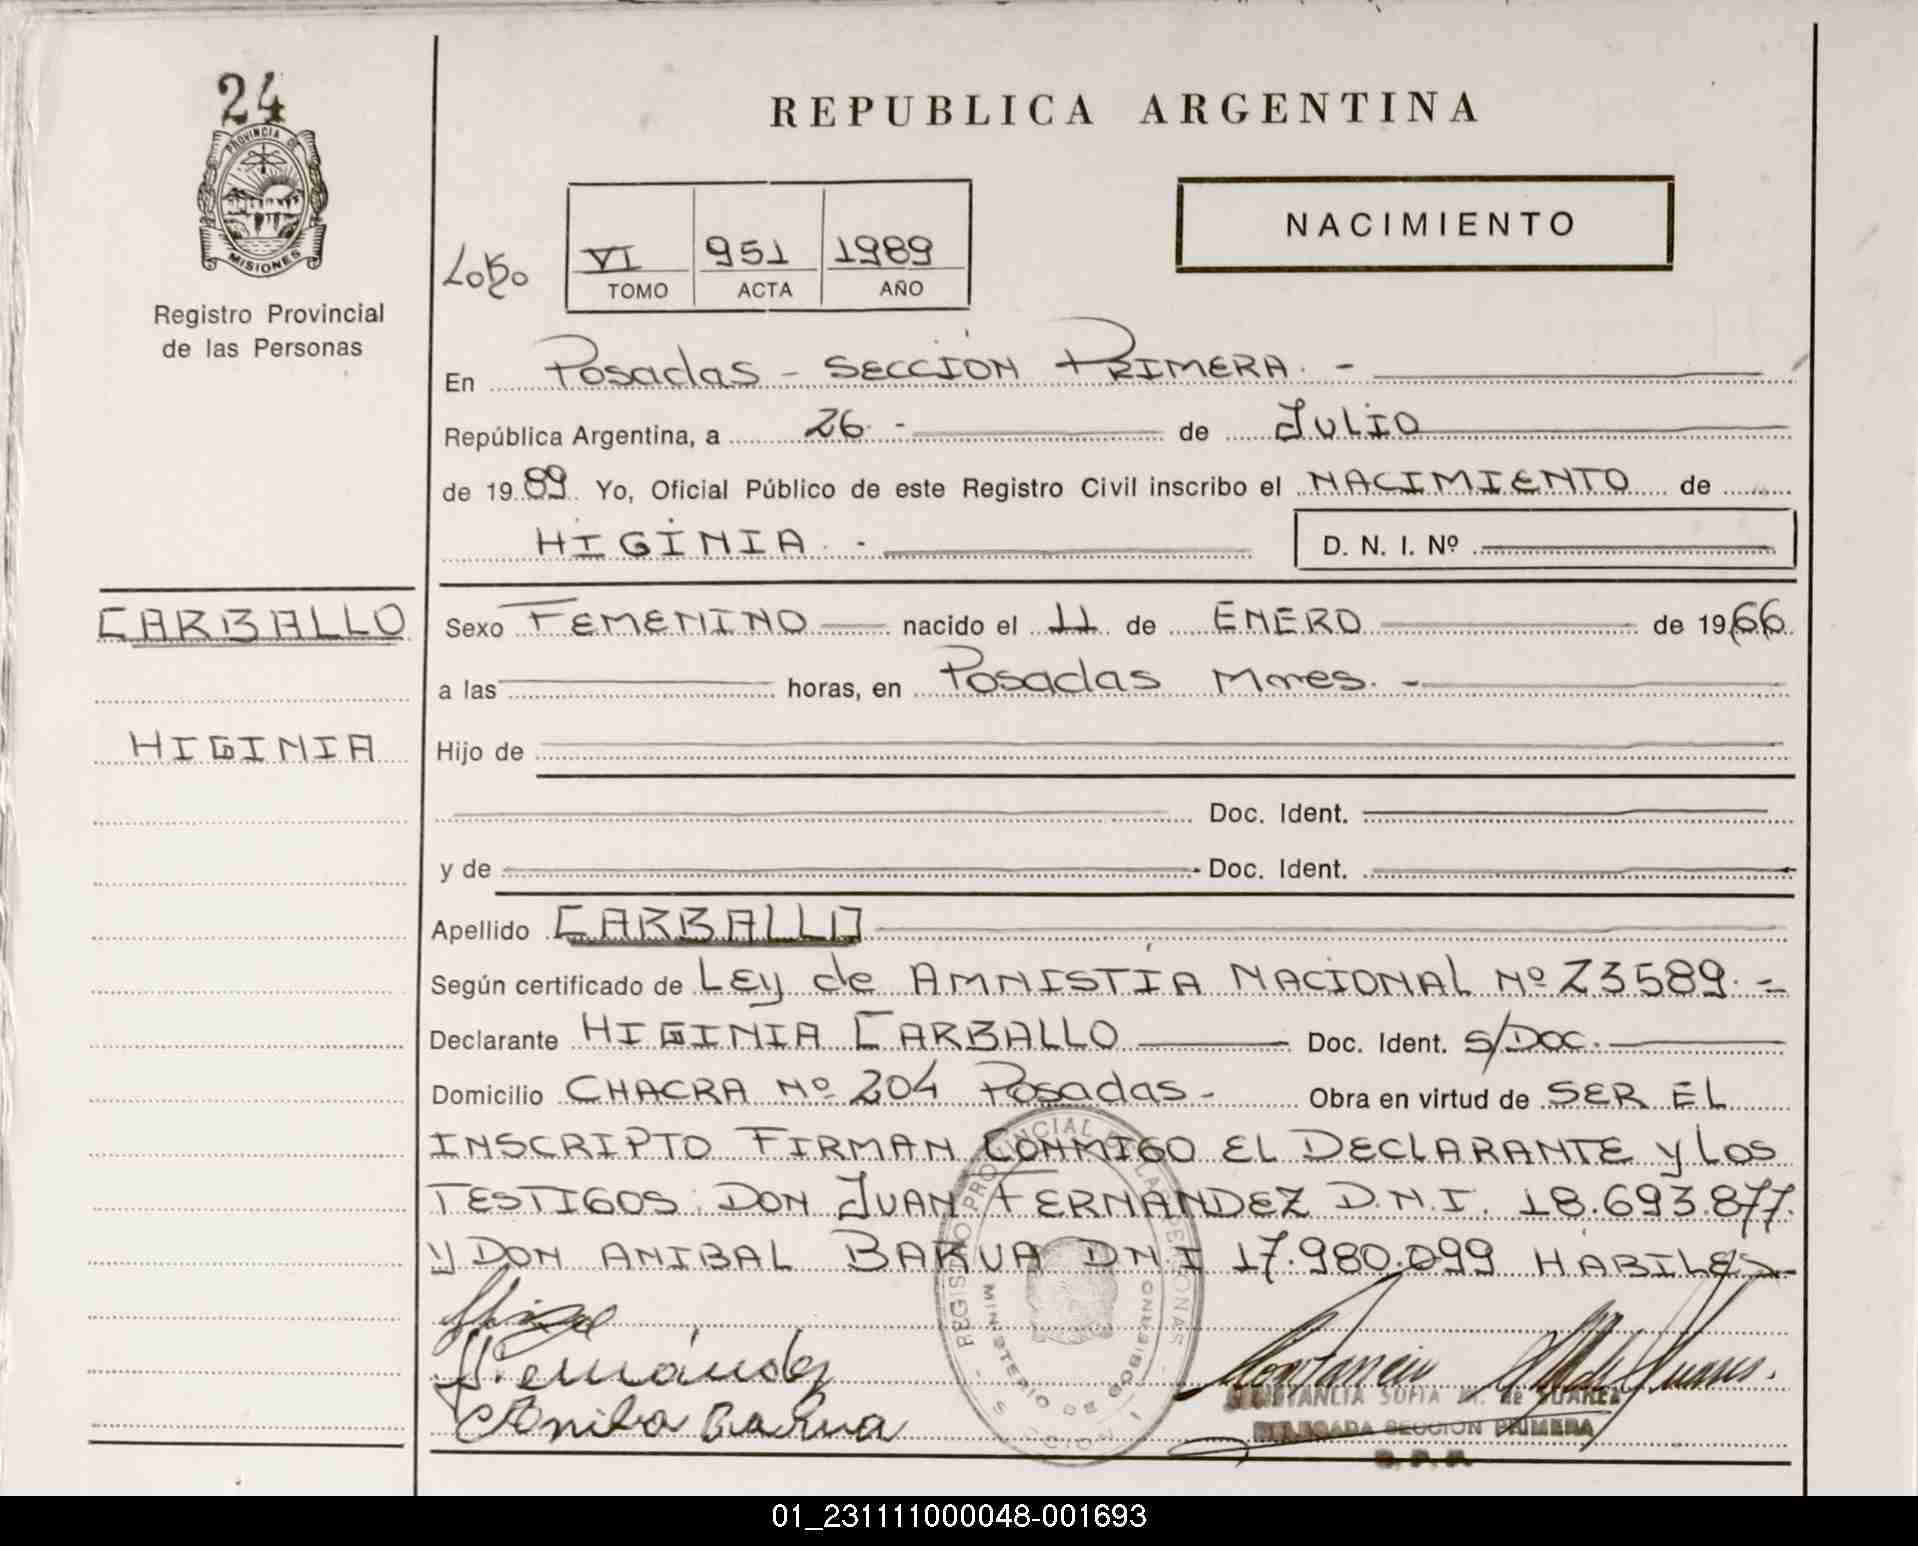 24
PROVINCIA DE
MISIONES
Registro Provincial
de las Personas
CARBALLO
HIGINIA
REPUBLICA ARGENTINA
NACIMIENTO
VI 951 1989
TOMO ACTA AÑO
En Posadas - SECCIÓN PRIMERA. -
República Argentina, a 26 - de JULIO
de 1989 Yo, Oficial Público de este Registro Civil inscribo el NACIMIENTO de
HIGINIA. - D. N. I. Nº
Sexo FEMENINO nacido el 11 de ENERO de 1966
a las horas, en Posadas Mnes. -
Hijo de
Doc. Ident.
y de Doc. Ident.
Apellido CARBALLO
Según certificado de LEy de AMNISTÍA NACIONAL Nº 23589. -
Declarante HIGINIA CARBALLO Doc. Ident. S/DOC.
Domicilio CHACRA Nº 204 Posadas - Obra en virtud de SER EL
INSCRIPTO FIRMAN CONMIGO EL DECLARANTE y LOS
TESTIGOS: DON JUAN FERNANDEZ D.N.I. 18.693.877.
y DON ANIBAL BARUA D.N.I 17.980.099 HABILES
REGISTRO PROVINCIAL DE LAS PERSONAS
MINISTERIO DE GOBIERNO
Fernández
Anibal Barua
CONSTANCIA SOFIA M. de SUAREZ
DELEGADA SECCION PRIMERA
R. P. P.
01_231111000048-001693